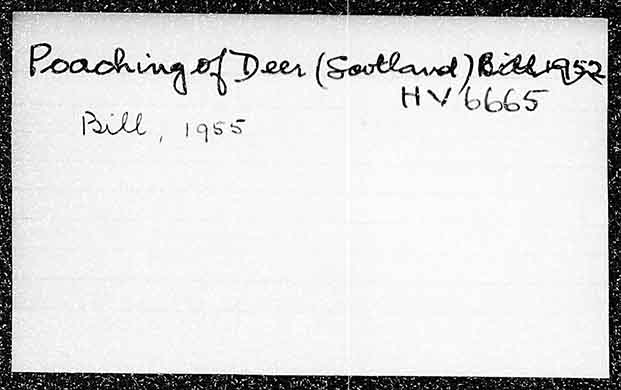 Poaching of Deer (Scotland) Bill 1952
HV 6665
Bill, 1955